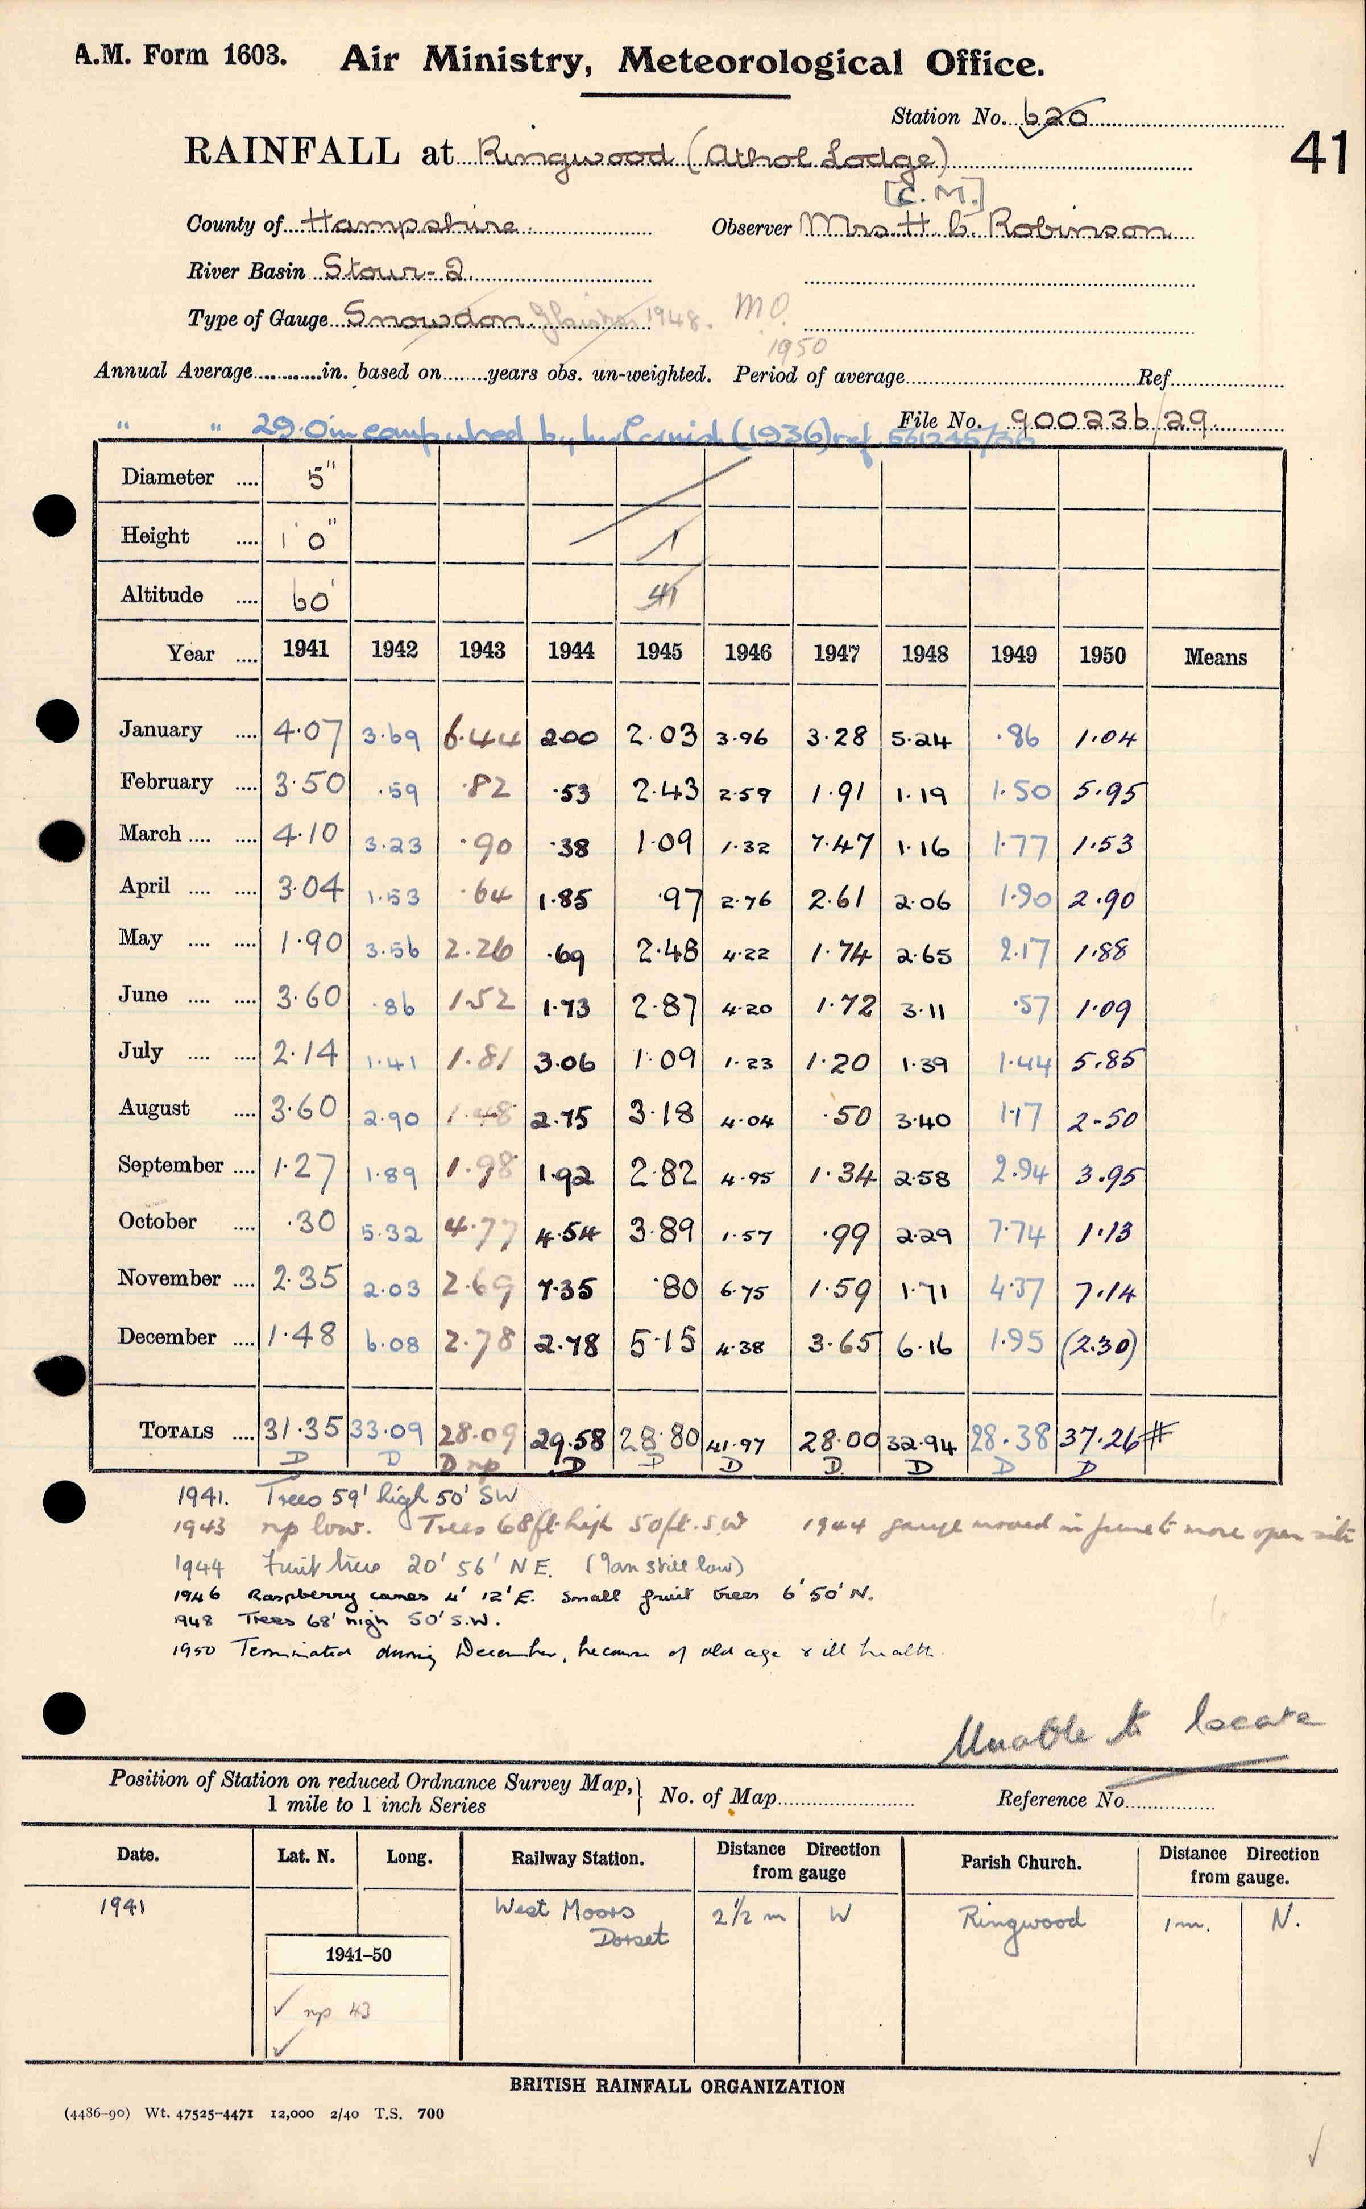 A.M. Form 1603. Air Ministry, Meteorological Office.
Station No. 620
RAINFALL at Ringwood (Athol Lodge)
41
[C. M.]
County of Hampshire Observer Mrs H. C. Robinson
River Basin Stour-2
Type of Gauge Snowdon 1948. M.O.
1950
Annual Average in. based on years obs. un-weighted. Period of average Ref.
" " 29.0in computed by (1936) ref.
File No. 900236/29
Diameter .... 5"
Height .... 1' 0"
Altitude .... 60'
Year .... 1941 1942 1943 1944 1945 1946 1947 1948 1949 1950 Means
January .... 4.07 3.69 6.44 2.00 2.03 3.96 3.28 5.24 .86 1.04
February .... 3.50 .59 .82 .53 2.43 2.59 1.91 1.19 1.50 5.95
March .... .... 4.10 3.23 .90 .38 1.09 1.32 7.47 1.16 1.77 1.53
April .... .... 3.04 1.53 .64 1.85 .97 2.76 2.61 2.06 1.90 2.90
May .... .... 1.90 3.56 2.26 .69 2.48 4.22 1.74 2.65 2.17 1.88
June .... .... 3.60 .86 1.52 1.73 2.87 4.20 1.72 3.11 .57 1.09
July .... .... 2.14 1.41 1.81 3.06 1.09 1.23 1.20 1.39 1.44 5.85
August .... 3.60 2.90 1.48 2.75 3.18 4.04 .50 3.40 1.17 2.50
September .... 1.27 1.89 1.98 1.92 2.82 4.95 1.34 2.58 2.94 3.95
October .... .30 5.32 4.77 4.54 3.89 1.57 .99 2.29 7.74 1.13
November .... 2.35 2.03 2.69 7.35 .80 6.75 1.59 1.71 4.37 7.14
December .... 1.48 6.08 2.78 2.78 5.15 4.38 3.65 6.16 1.95 (2.30)
TOTALS .... 31.35 33.09 28.09 29.58 28.80 41.97 28.00 32.94 28.38 37.26 #
D D D np D D D D D D D
1941. Trees 59' high 50' SW
1943 np low. Trees 68ft. high 50ft. S.W 1944 gauge moved in June to more open site
1944 Fruit trees 20' 56' N E. (9am still low)
1946 Raspberry canes 4' 12' E. Small fruit trees 6' 50' N.
1948 Trees 68' high 50' S.W.
1950 Terminated during December, because of old age & ill health.
Unable to locate
Position of Station on reduced Ordnance Survey Map, 1 mile to 1 inch Series No. of Map Reference No.
Date. Lat. N. Long. Railway Station. Distance Direction from gauge Parish Church. Distance Direction from gauge.
1941 West Moors Dorset 2½ m W Ringwood 1m. N.
1941–50
✓ np 43
✓
BRITISH RAINFALL ORGANIZATION
(4486-90) Wt. 47525-4471 12,000 2/40 T.S. 700